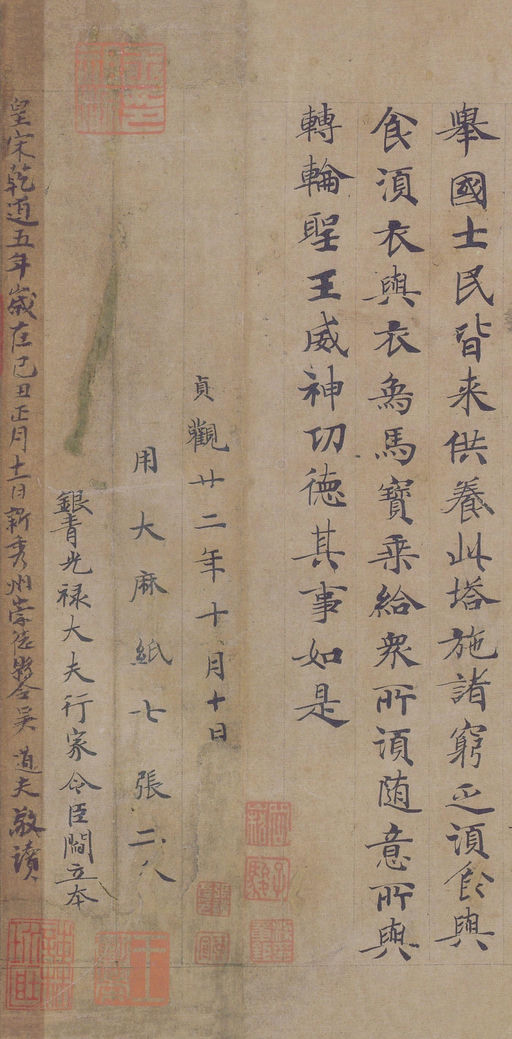 舉國士民皆来供養此塔施諸窮乏須食與
食須衣與衣烏馬寶乘給衆所須随意所與
轉輪聖王威神功德其事如是
貞觀廿二年十月十日
用大麻紙七張二分
銀青光禄大夫行家令臣閻立本
皇宋乾道五年歲在己丑正月十一日新秀州崇德縣令吳道夫敬讀